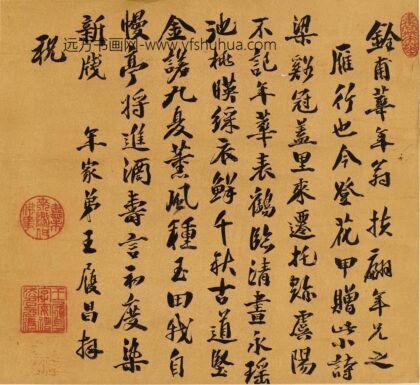 远方书画网--www.yfshuhua.com
銓甫華年翁 扶翮年兄之
雁行也今登花甲贈此小詩
梁谿冠蓋里來遷托跡虞陽
不記年華表鶴臨清晝永瑤
池桃暎綵衣鮮千秋古道堅
金諾九夏薰風種玉田我自
幔亭將進酒壽言初度染
新牋 年家弟王履昌拜
祝